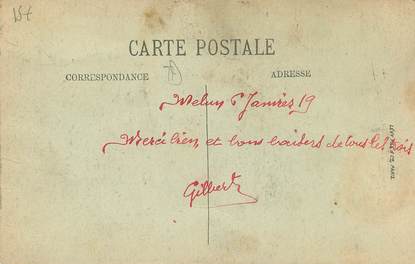 15t
CARTE POSTALE
CORRESPONDANCE
ADRESSE
Melun 6 Janvier 19
Merci bien et bons baisers de tous les trois
Gilbert